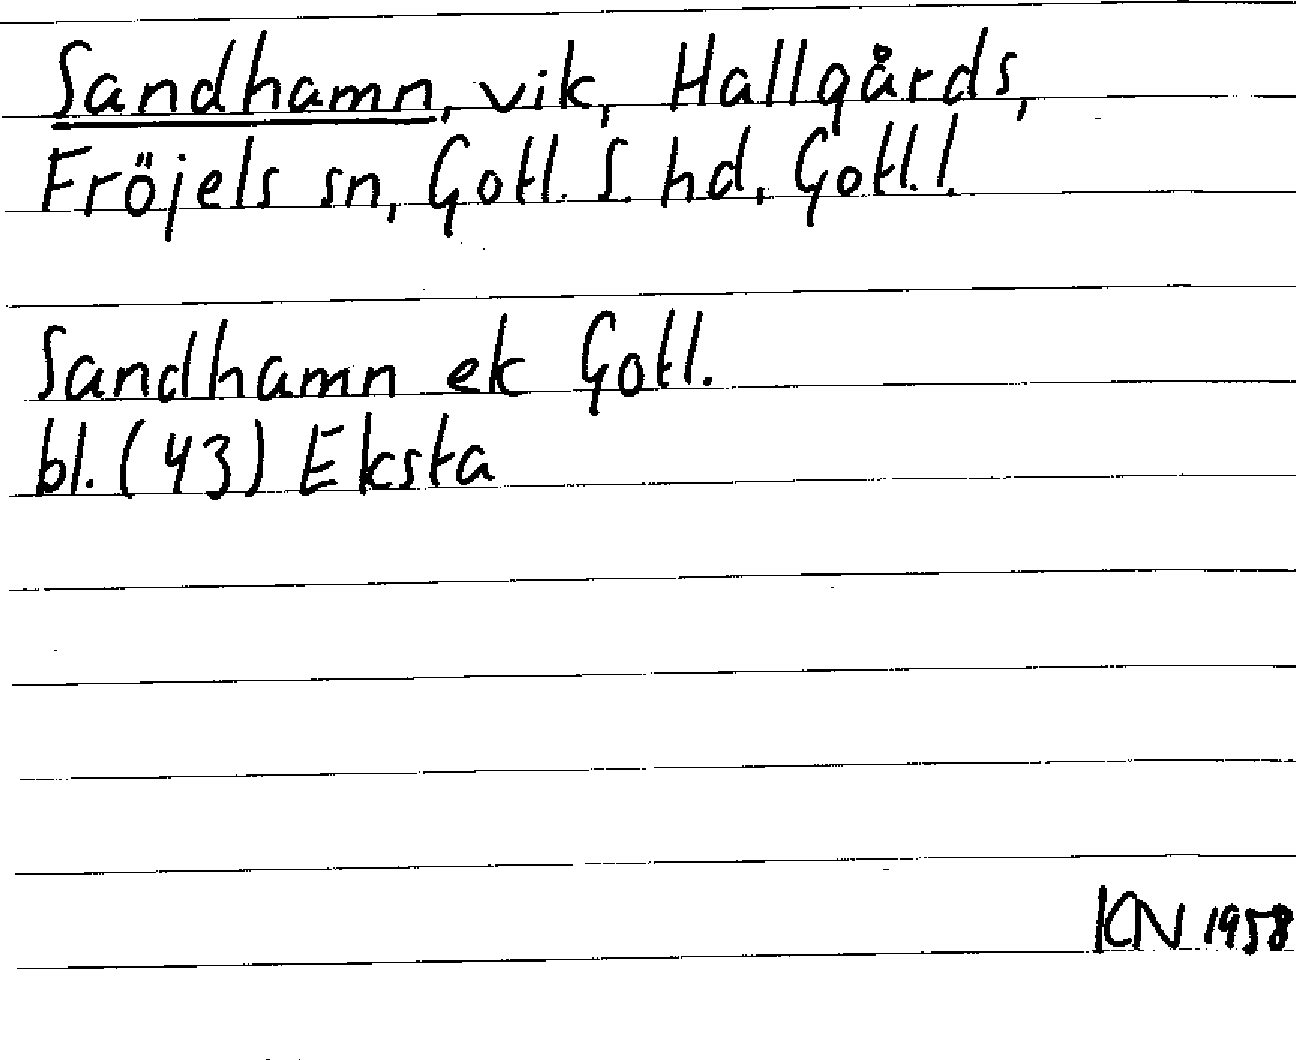 Sandhamn, vik, Hallgårds,
Fröjels sn, Gotl. S. hd, Gotl. l.
Sandhamn ek Gotl.
bl. (43) Eksta
KN 1958